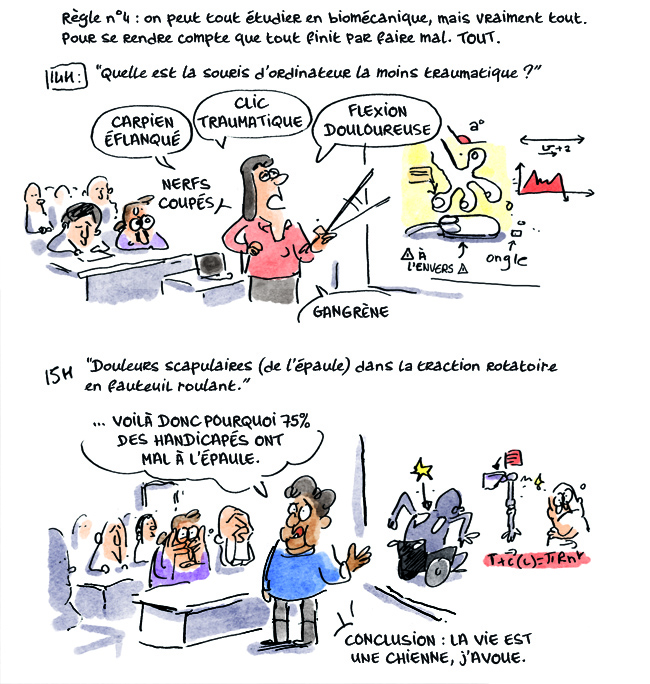 Règle n°4 : on peut tout étudier en biomécanique, mais vraiment tout.
Pour se rendre compte que tout finit par faire mal. TOUT.
14H : "Quelle est la souris d'ordinateur la moins traumatique ?"
CARPIEN
ÉFLANQUÉ
CLIC
TRAUMATIQUE
FLEXION
DOULOUREUSE
NERFS
COUPÉS
a°
⚠ À
L'ENVERS ⚠
ongle
GANGRÈNE
15H "Douleurs scapulaires (de l'épaule) dans la traction rotatoire
en fauteuil roulant."
... VOILÀ DONC POURQUOI 75%
DES HANDICAPÉS ONT
MAL À L'ÉPAULE.
CONCLUSION : LA VIE EST
UNE CHIENNE, J'AVOUE.